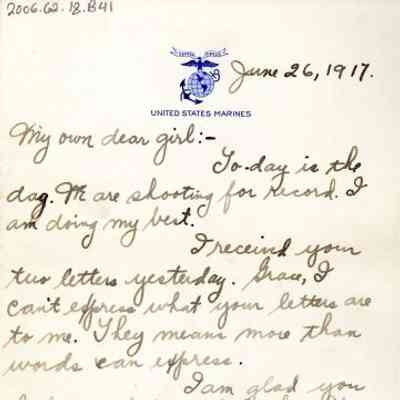 2006.62.18.B41
SEMPER FIDELIS
June 26, 1917.
UNITED STATES MARINES
My own dear girl:-
To-day is the
day. We are shooting for record. I
am doing my best.
I receivd your
two letters yesterday. Grace, I
can't express what your letters are
to me. They mean more than
words can express.
I am glad you